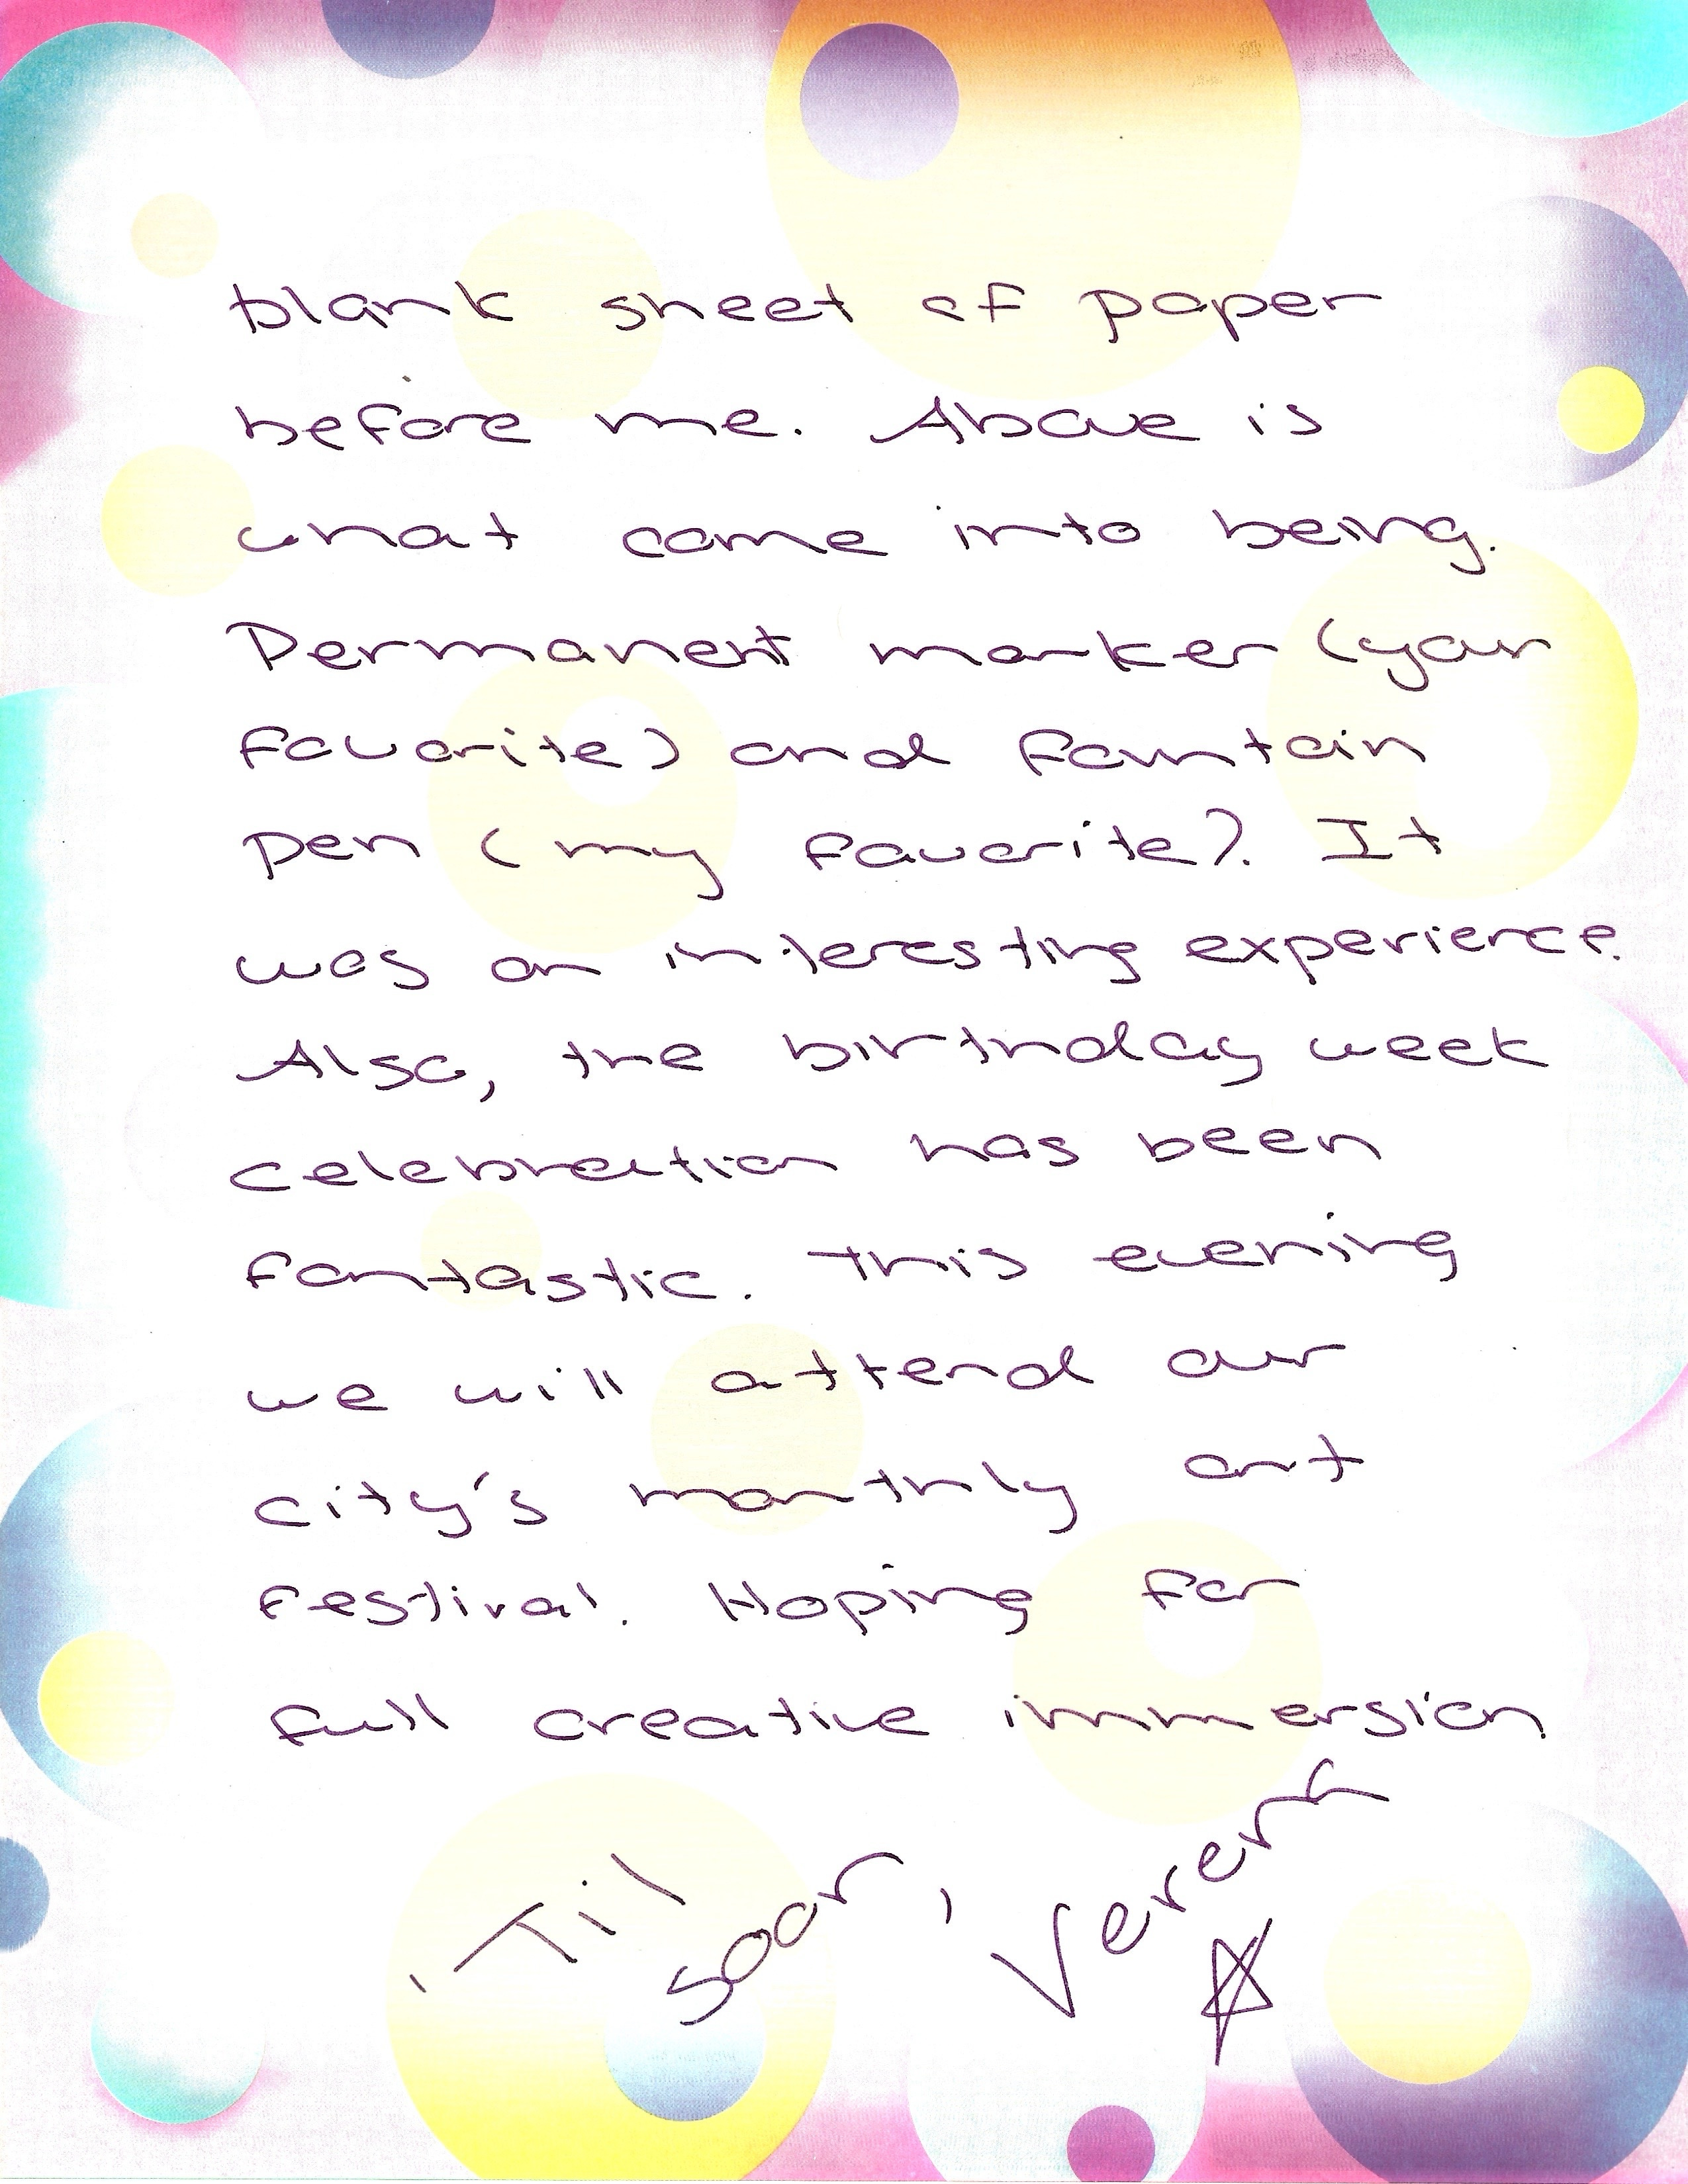 blank sheet of paper
before me. Above is
what came into being.
Permanent marker (your
favorite) and fountain
pen (my favorite). It
was an interesting experience.
Also, the birthday week
celebration has been
fantastic. This evening
we will attend our
city's monthly art
festival. Hoping for
full creative immersion.
'Til soon, Verena